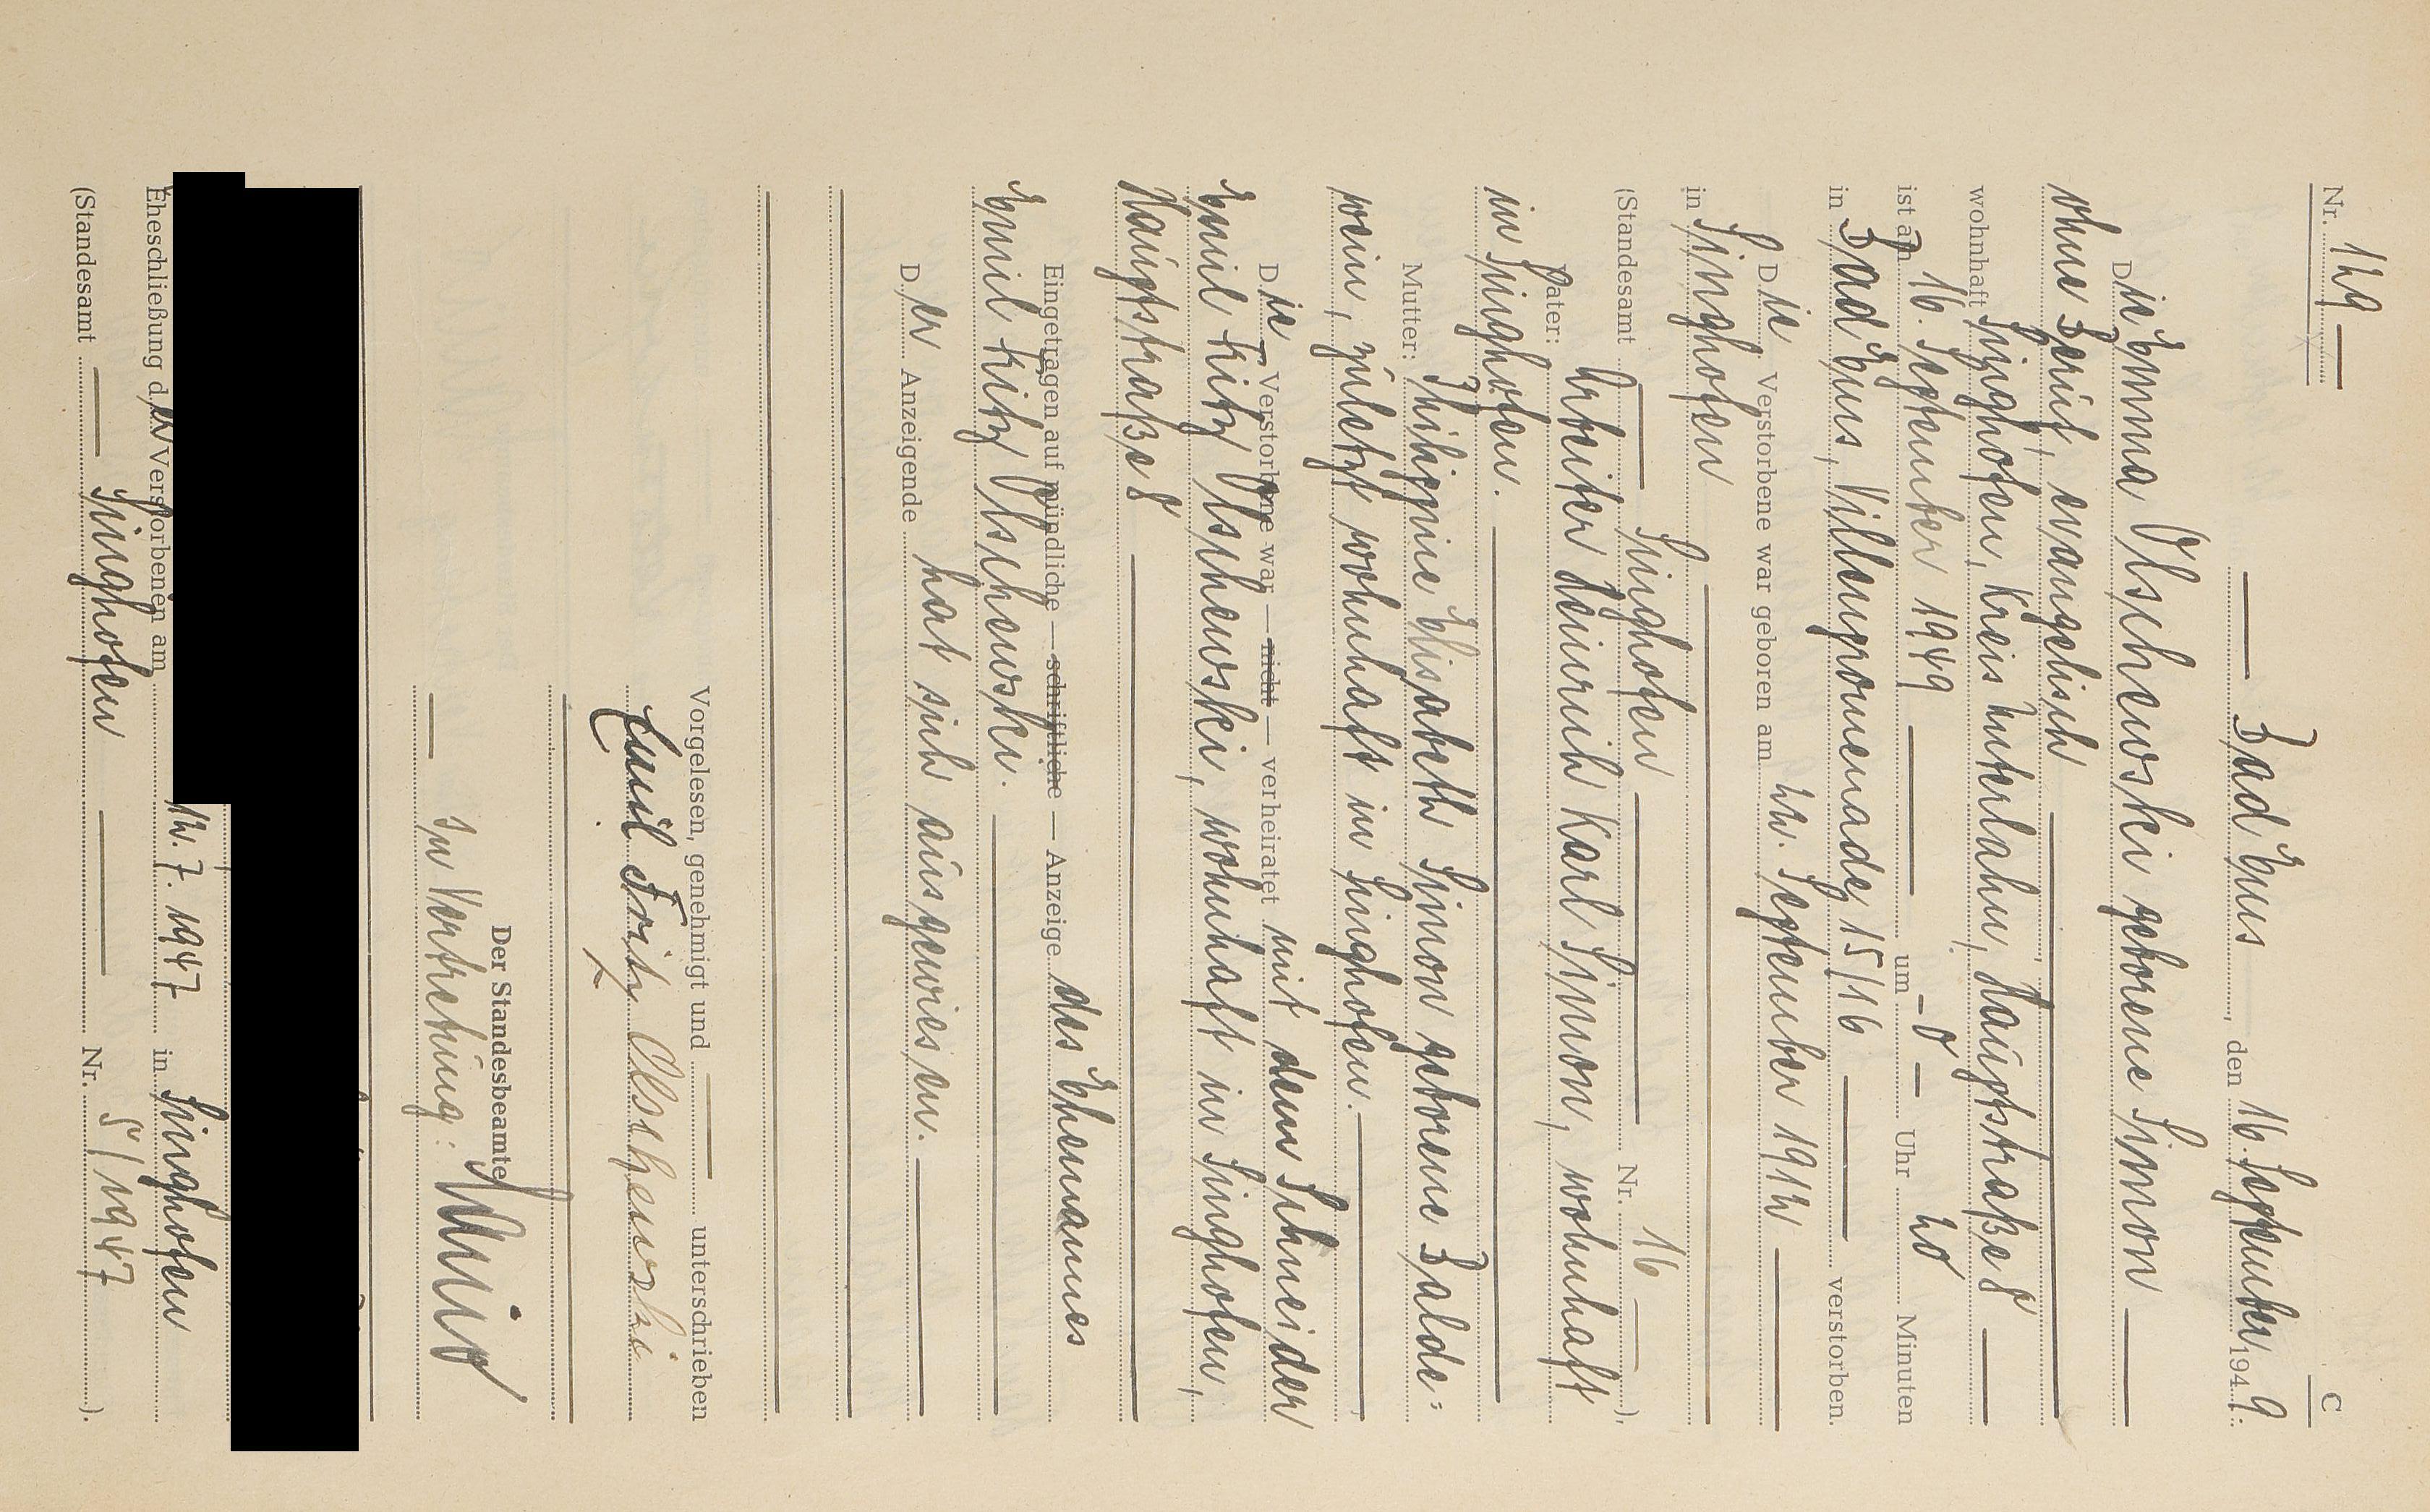 Nr. 129
C
Bad Ems, den 16. September 1949.
Die Emma Olschewski geborene Simon
ohne Beruf, evangelisch
wohnhaft Singhofen, Kreis Unterlahn, Hauptstraße 8
ist am 16. September 1949 um -0- Uhr 20 Minuten
in Bad Ems, Villenpromenade 15/16 verstorben.
Die Verstorbene war geboren am 22. September 1912
in Singhofen
(Standesamt Singhofen Nr. 16 ).
Vater: Arbeiter Heinrich Karl Simon, wohnhaft
in Singhofen.
Mutter: Philippine Elisabeth Simon geborene Balde-
wein, zuletzt wohnhaft in Singhofen.
Die Verstorbene war — nicht — verheiratet mit dem Schneider
Emil Fritz Olschewski, wohnhaft in Singhofen,
Hauptstraße 8
Eingetragen auf mündliche — schriftliche — Anzeige des Ehemannes
Emil Fritz Olschewski.
Der Anzeigende hat sich ausgewiesen.
Vorgelesen, genehmigt und unterschrieben
Emil Fritz Olschewski
Der Standesbeamte
In Vertretung:
Eheschließung der Verstorbenen am 12.7.1947 in Singhofen
(Standesamt Singhofen Nr. 5/1947 ).